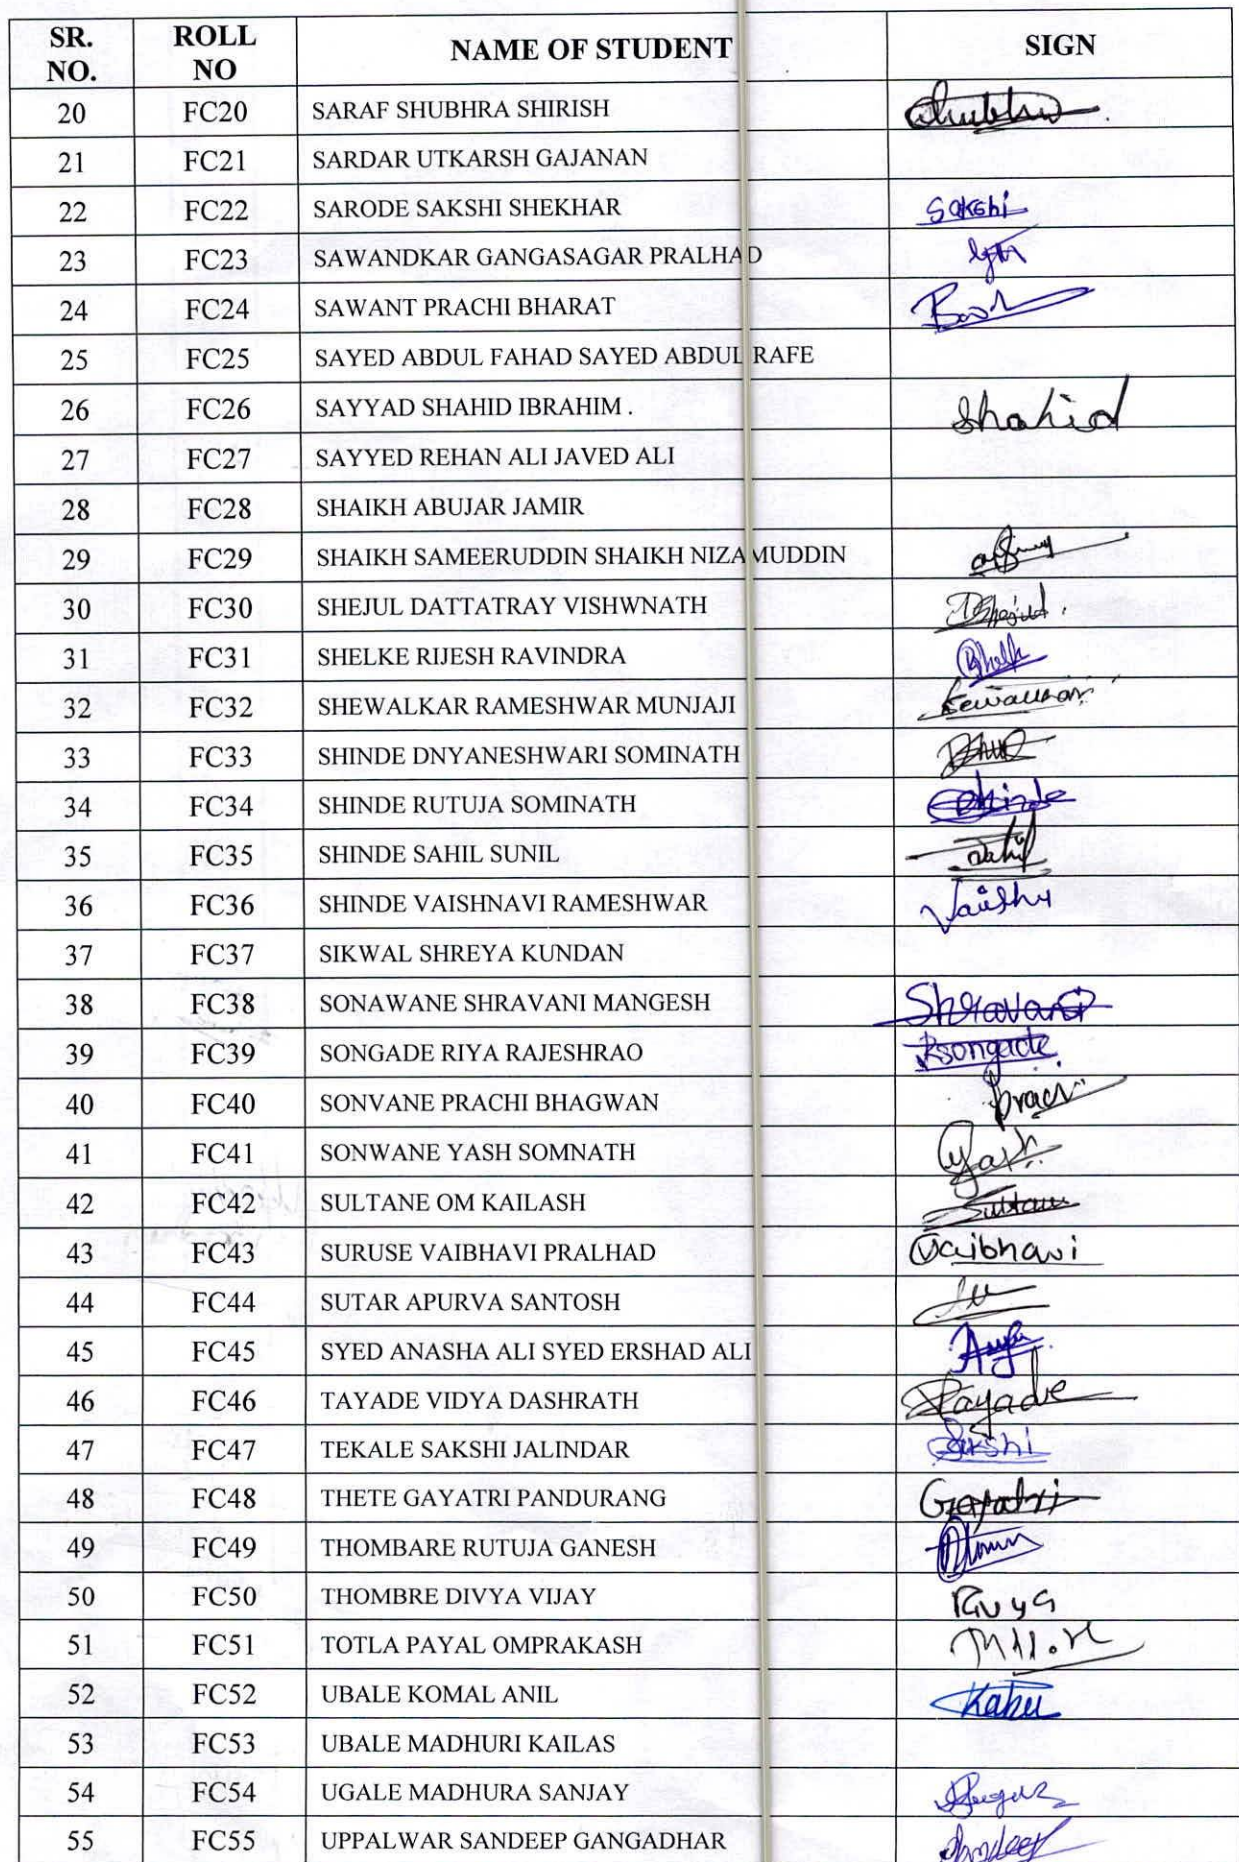 SR. NO. ROLL NO NAME OF STUDENT SIGN
20 FC20 SARAF SHUBHRA SHIRISH
21 FC21 SARDAR UTKARSH GAJANAN
22 FC22 SARODE SAKSHI SHEKHAR Sakshi
23 FC23 SAWANDKAR GANGASAGAR PRALHAD
24 FC24 SAWANT PRACHI BHARAT
25 FC25 SAYED ABDUL FAHAD SAYED ABDUL RAFE
26 FC26 SAYYAD SHAHID IBRAHIM . Shahid
27 FC27 SAYYED REHAN ALI JAVED ALI
28 FC28 SHAIKH ABUJAR JAMIR
29 FC29 SHAIKH SAMEERUDDIN SHAIKH NIZAMUDDIN
30 FC30 SHEJUL DATTATRAY VISHWNATH
31 FC31 SHELKE RIJESH RAVINDRA
32 FC32 SHEWALKAR RAMESHWAR MUNJAJI
33 FC33 SHINDE DNYANESHWARI SOMINATH
34 FC34 SHINDE RUTUJA SOMINATH
35 FC35 SHINDE SAHIL SUNIL
36 FC36 SHINDE VAISHNAVI RAMESHWAR
37 FC37 SIKWAL SHREYA KUNDAN
38 FC38 SONAWANE SHRAVANI MANGESH Shravani
39 FC39 SONGADE RIYA RAJESHRAO Rsongade
40 FC40 SONVANE PRACHI BHAGWAN
41 FC41 SONWANE YASH SOMNATH Yash
42 FC42 SULTANE OM KAILASH
43 FC43 SURUSE VAIBHAVI PRALHAD Vaibhavi
44 FC44 SUTAR APURVA SANTOSH
45 FC45 SYED ANASHA ALI SYED ERSHAD ALI
46 FC46 TAYADE VIDYA DASHRATH Tayade
47 FC47 TEKALE SAKSHI JALINDAR Sakshi
48 FC48 THETE GAYATRI PANDURANG Gayatri
49 FC49 THOMBARE RUTUJA GANESH
50 FC50 THOMBRE DIVYA VIJAY
51 FC51 TOTLA PAYAL OMPRAKASH
52 FC52 UBALE KOMAL ANIL
53 FC53 UBALE MADHURI KAILAS
54 FC54 UGALE MADHURA SANJAY
55 FC55 UPPALWAR SANDEEP GANGADHAR